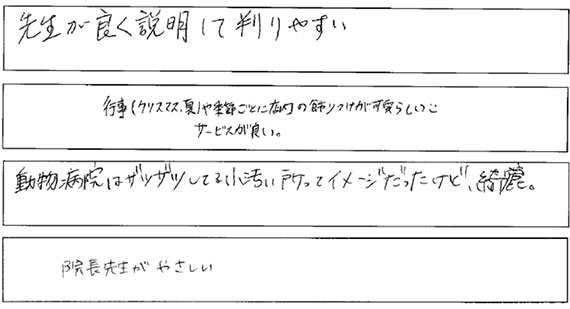 先生が良く説明して判りやすい
行事(クリスマス、夏)や季節ごとに店内の飾りつけが可愛らしい
サービスが良い。
動物病院はザツザツしてる小汚い所ってイメージだったけど、綺麗。
院長先生がやさしい